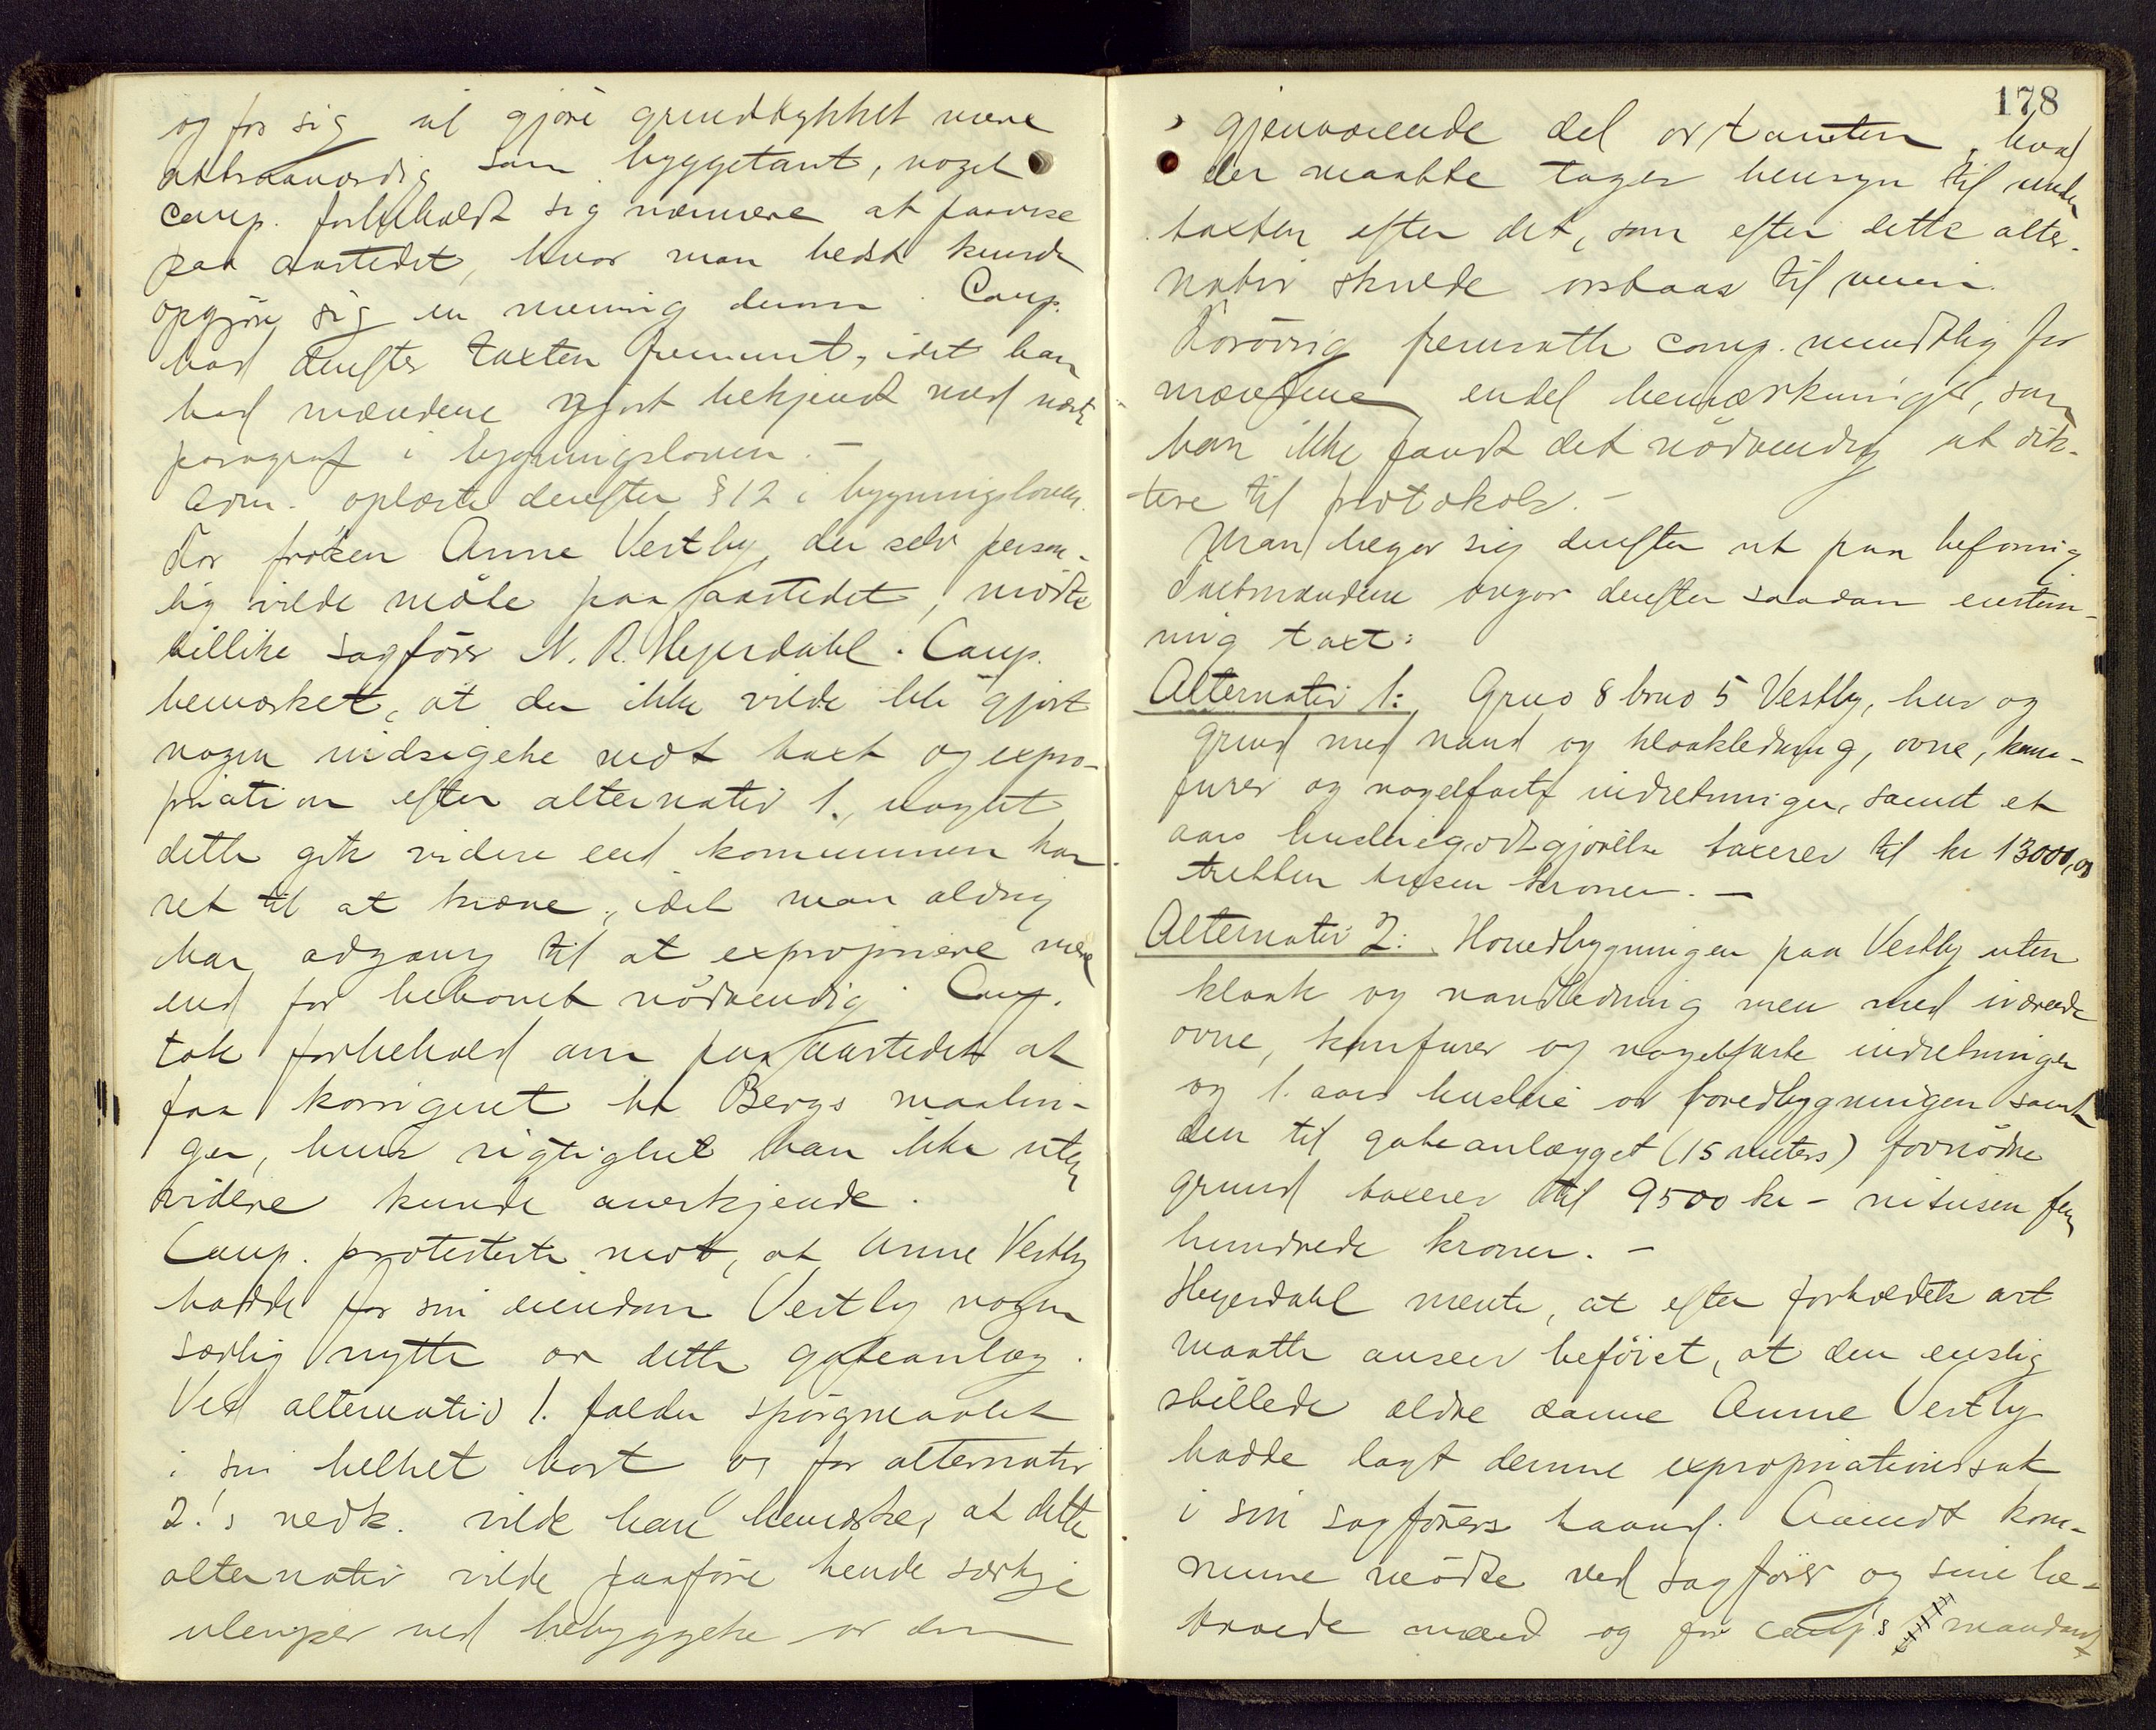 og for sig vil gjøre grundstykket mere
attraaværdig som byggetomt, noget
comp. forbeholdt sig nærmere at paavise
paa aastedet, hvor man bedst kunde
opgjøre sig en mening derom. Comp.
bad derefter taxten fremmet, idet han
bad mændene gjort bekjendt med nævnte
paragraf i bygningsloven. -
Adm. oplæste derefter § 12 i bygningsloven.
For frøken Anne Vestby, der selv person-
lig vilde møte paa aastedet, mødte
tillike sagfører N. R. Heyerdahl. Comp.
bemerket, at der ikke vilde bli gjort
nogen indsigelse mot taxt og expro-
priation efter alternativ 1., uagtet
dette gik videre end kommunen har
ret til at kræve, idet man aldrig
har adgang til at expropriere mere
end for behovet nødvendig. Comp.
tok forbehold om paa aastedet at
faa korrigeret hr Bergs maalin-
ger, hvis rigtighet han ikke uten
videre kunde anerkjende.
Comp. protesterte mot, at Anne Vestby
hadde for sin eiendom Vestby nogen
særlig nytte av dette gateanlæg.
Ved alternativ 1. falder spørgsmaalet
i sin helhet bort og for alternativ
2.'s vedk. vilde han bemerke, at dette
alternativ vilde paaføre hende særlige
ulemper ved bebyggelse av den
178
gjenværende del av tomten, hvad
der maatte tages hensyn til under
taxten efter det, som efter dette alter-
nativ skulde avstaaes til veien.
Forøvrig fremsatte comp. mundtlig for
mændene endel bemærkninger, som
han ikke fandt det nødvendig at dik-
tere til protokols. -
Man begav sig derefter ut paa befaring
Taxtmændene avgav derefter saadan enstem-
mig taxt:
Alternativ 1: Grno 8 brno 5 Vestby, hus og
grund med vand og kloakledning, ovne, kom-
furer og nagelfaste indretninger, samt et
aars husleiegodtgjørelse taxeres til kr 13000,00
tretten tusen kroner. -
Alternativ 2: Hovedbygningen paa Vestby uten
kloak og vandledning men med iværende
ovne, komfurer og nagelfaste indretninger
og 1. aars husleie av hovedbygningen samt
den til gateanlægget (15 meters) fornødne
grund taxeres til 9500 kr - nitusen fem
hundrede kroner. -
Heyerdahl mente, at efter forholdets art
maatte ansees beføiet, at den enslig
stillede ældre dame Anne Vestby
hadde lagt denne expropriationssak
i sin sagførers haand. Aamot kom-
mune mødte ved sagfører og sine be-
troede mænd og for comp's mandant